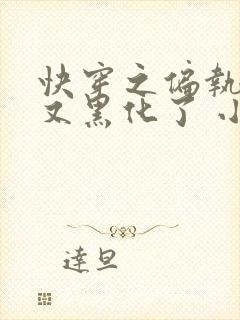 快穿之偏執
又黑化了 小
達旦